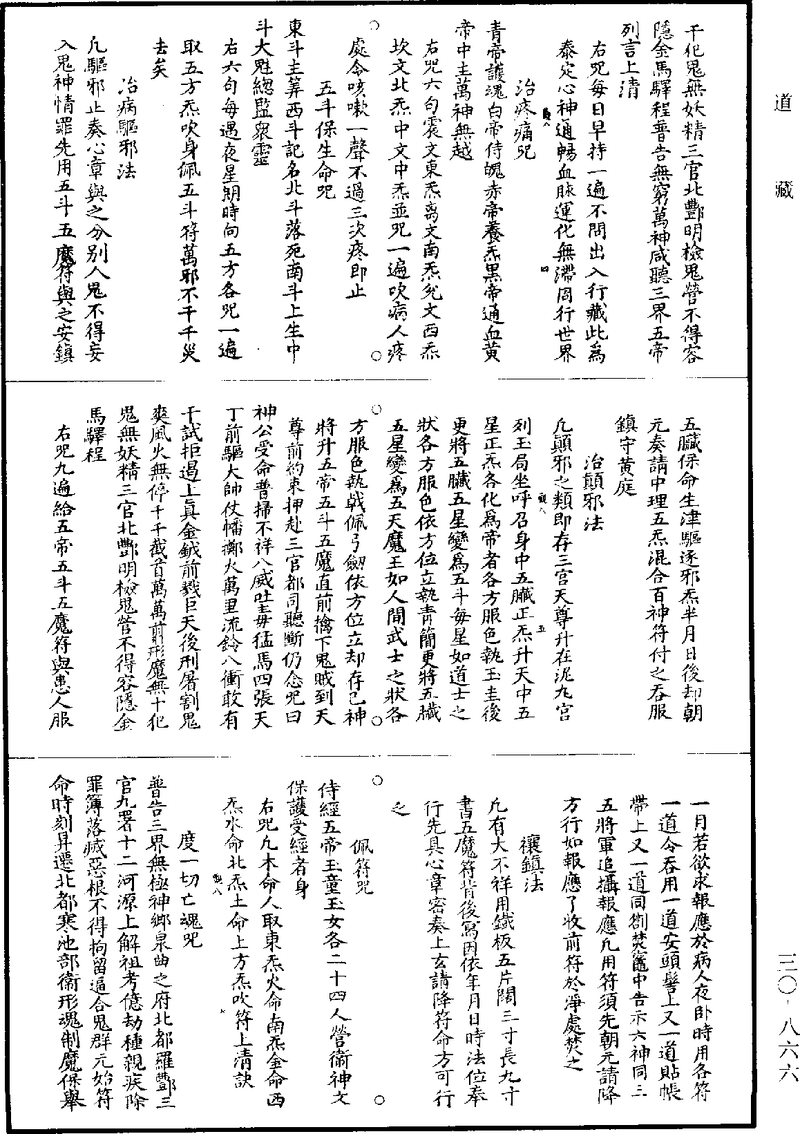 道藏
三〇·八六六
千犯鬼無妖精三官北酆明檢鬼營不得容
隱金馬驛程普告無窮萬神咸聽三界五帝
列言上清
右咒每日早持一遍不問出入行藏此爲
泰定心神通暢血脉運化無滯周行世界
治疼痛咒
青帝護魂白帝侍魄赤帝養炁黑帝通血黄
帝中主萬神無越
右咒六句震文東炁离文南炁兊文西炁
坎文北炁中文中炁並咒一遍吹病人疼
處令咳嗽一聲不過三次疼即止
五斗保生命咒
東斗主筭西斗記名北斗落死南斗上生中
斗大魁總監衆靈
右六句每遇夜星朗時向五方各咒一遍
取五方炁吹身佩五斗符萬邪不干千災
去矣
治病驅邪法
凢驅邪止奏心章與之分别人鬼不得妄
入鬼神情罪先用五斗五魔符與之安鎮
五臟保命生津驅逐邪炁半月日後却朝
元奏請中理五炁混合百神符付之吞服
鎮守黄庭
治顛邪法
凢顛邪之類即存三宫天尊升在泥九宫
列玉局坐呼召身中五臟正炁升天中五
星正炁各化爲帝者各方服色執玉圭後
更將五臟五星變爲五斗每星如道士之
狀各方服色依方位立執青簡更將五臟
五星變爲五天魔王如人間武士之狀各
方服色執戟佩弓劒依方位立却存己神
將升五帝五斗五魔直前擒下鬼賊到天
尊前約束押赴三官都司聽斷仍念咒曰
神公受命普掃不祥八威吐毒猛馬四張天
丁前驅大帥仗幡擲火萬里流鈴八衝敢有
干試拒遏上真金鉞前戮巨天後刑屠割鬼
爽風火無停千千截首萬萬剪形魔無十犯
鬼無妖精三官北酆明檢鬼營不得容隱金
馬驛程
右咒九遍給五帝五斗五魔符與患人服
一月若欲求報應於病人夜卧時用各符
一道令吞用一道安頭髻上又一道貼帳
帶上又一道同劄焚竈中告示六神同三
五將軍追攝報應凢用符須先朝元請降
方行如報應了收前符於淨處焚之
禳鎮法
凢有大不祥用鐵板五片闊三寸長九寸
書五魔符背後寫因依年月日時法位奉
行先具心章密奏上玄請降符命方可行
之
佩符咒
侍經五帝玉童玉女各二十四人營衛神文
保護受經者身
右咒凢本命人取東炁火命南炁金命西
炁水命北炁土命上方炁吹符上清訣
度一切亡魂咒
普告三界無極神鄉泉曲之府北都羅酆三
官九署十二河源上解祖考億劫種親疾除
罪簿落滅惡根不得拘留逼合鬼群元始符
命時刻昇遷北都寒池部衛形魂制魔保舉